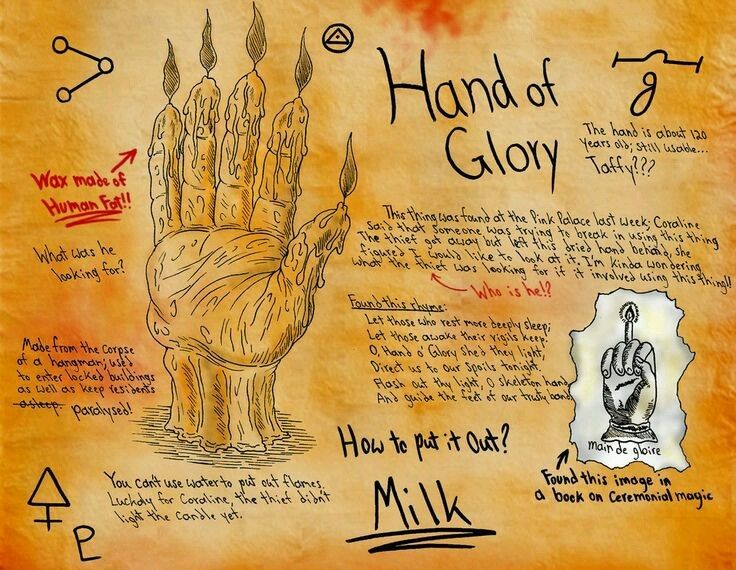 Hand of
Glory
The hand is about 120
years old; still usable...
Taffy???
Wax made of
Human Fat!!
This thing was found at the Pink Palace last week; Coraline
said that someone was trying to break in using this thing
The thief got away but left this dried hand behind, she
figured I would like to look at it. I'm kinda wondering
what the thief was looking for if it involved using this thing!!
Who is he!?
What was he
looking for?
Found this rhyme:
Let those who rest more deeply sleep;
Let those awake their vigils keep,
O, Hand o' Glory shed they light,
Direct us to our spoils tonight.
Flash out thy light, O skeleton hand
And guide the feet of our trusty band
Made from the corpse
of a hangman; used
to enter locked buildings
as well as keep residents
asleep. paralysed!
main de gloire
Found this image in
a book on Ceremonial magic
How to put it Out?
Milk
You can't use water to put out flames.
Luckdy for Coraline, the thief didn't
light the candle yet.